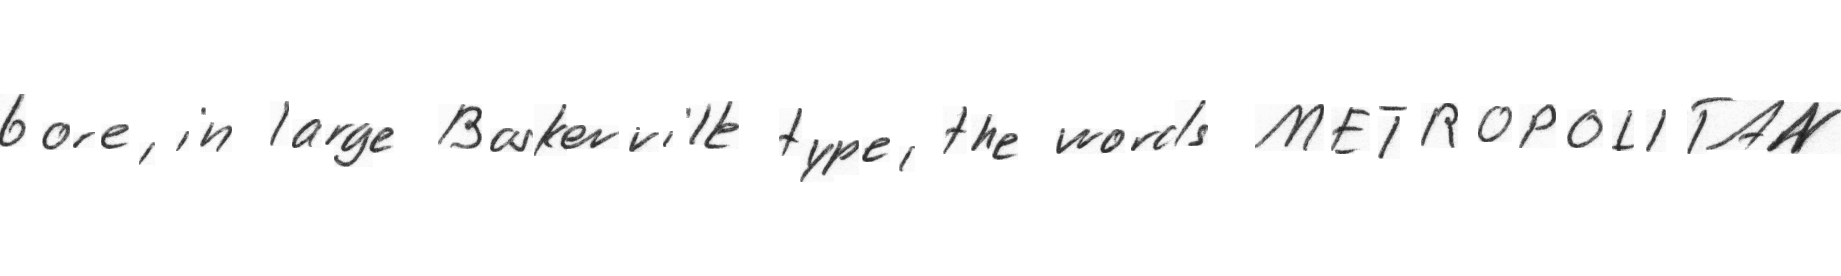 bore, in large Baskerville type, the words METROPOLITAN